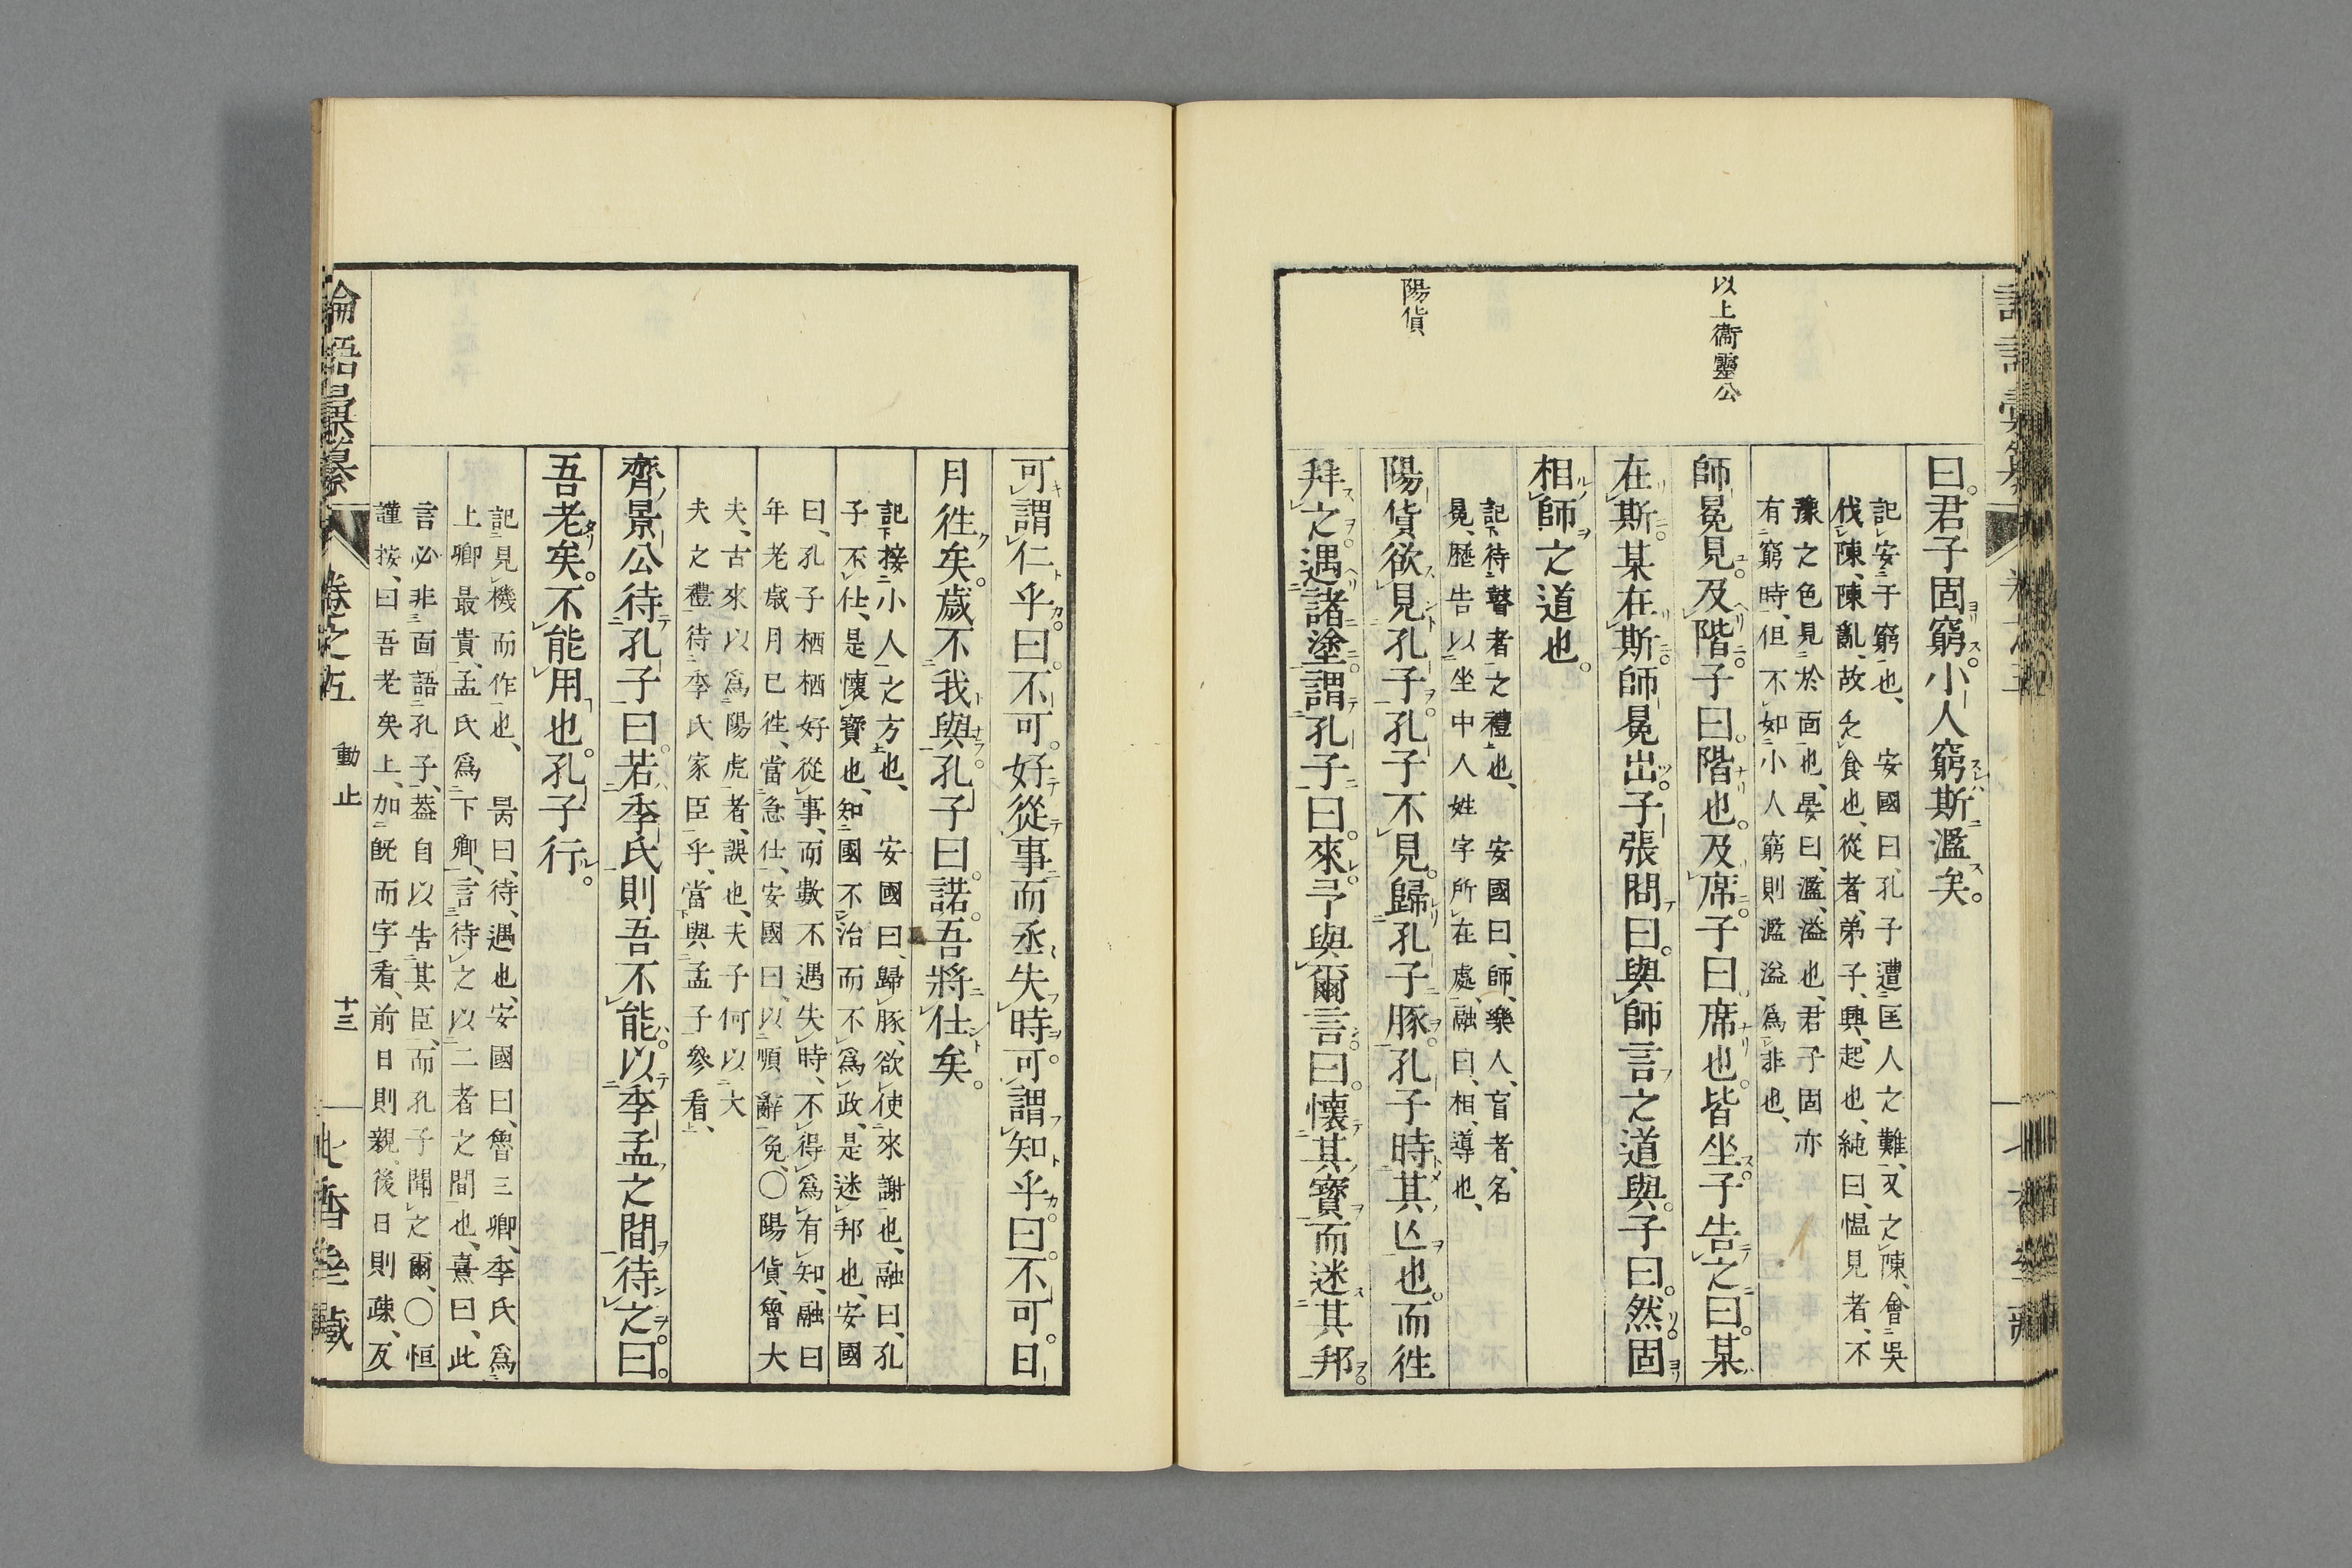 曰。君子固窮。小人窮斯濫矣。
記安于窮也、安國曰、孔子遭匡人之難、又之陳、會吳
伐陳、陳亂、故乏食也、從者、弟子、興、起也、純曰、慍見者、不
豫之色見於面也、晏曰、濫、溢也、君子固亦
有窮時、但不如小人窮則濫溢爲非也、
以上衞靈公
師冕見。及階。子曰。階也。及席。子曰。席也。皆坐。子告之曰。某
在斯。某在斯。師冕出。子張問曰。與師言之道與。子曰。然。固
相師之道也。
記待瞽者之禮也、安國曰、師、樂人、盲者、名
冕、歷告以坐中人姓字所在處、融曰、相、導也、
陽貨
陽貨欲見孔子。孔子不見。歸孔子豚。孔子時其亾也。而徃
拜之。遇諸塗。謂孔子曰。來。予與爾言。曰。懷其寶而迷其邦。
可謂仁乎。曰。不可。好從事而亟失時。可謂知乎。曰。不可。日
月徃矣。歲不我與。孔子曰。諾。吾將仕矣。
記接小人之方也、安國曰、歸豚、欲使來謝也、融曰、孔
子不仕、是懷寶也、知國不治而不爲政、是迷邦也、安國
曰、孔子栖栖好從事、而數不遇失時、不得爲有知、融曰
年老歲月已徃、當急仕、安國曰、以順辭免、〇陽貨、魯大
夫、古來以爲陽虎者、誤也、夫子何以大
夫之禮待季氏家臣乎、當與孟子參看、
齊景公待孔子曰。若季氏則吾不能。以季孟之間待之。曰。
吾老矣。不能用也。孔子行。
記見機而作也、昺曰、待、遇也、安國曰、魯三卿、季氏爲
上卿最貴、孟氏爲下卿、言待之以二者之間也、熹曰、此
言必非面語孔子、葢自以告其臣、而孔子聞之爾、〇恒
謹按、曰吾老矣上、加旣而字看、前日則親、後日則疎、反
論語彙纂
卷之五
動止
十三